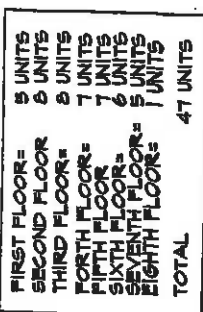 FIRST FLOOR= 5 UNITS
SECOND FLOOR 8 UNITS
THIRD FLOOR= 8 UNITS
FORTH FLOOR= 7 UNITS
FIFTH FLOOR 7 UNITS
SIXTH FLOOR= 6 UNITS
SEVENTH FLOOR= 5 UNITS
EIGHTH FLOOR= 1 UNITS
TOTAL 47 UNITS